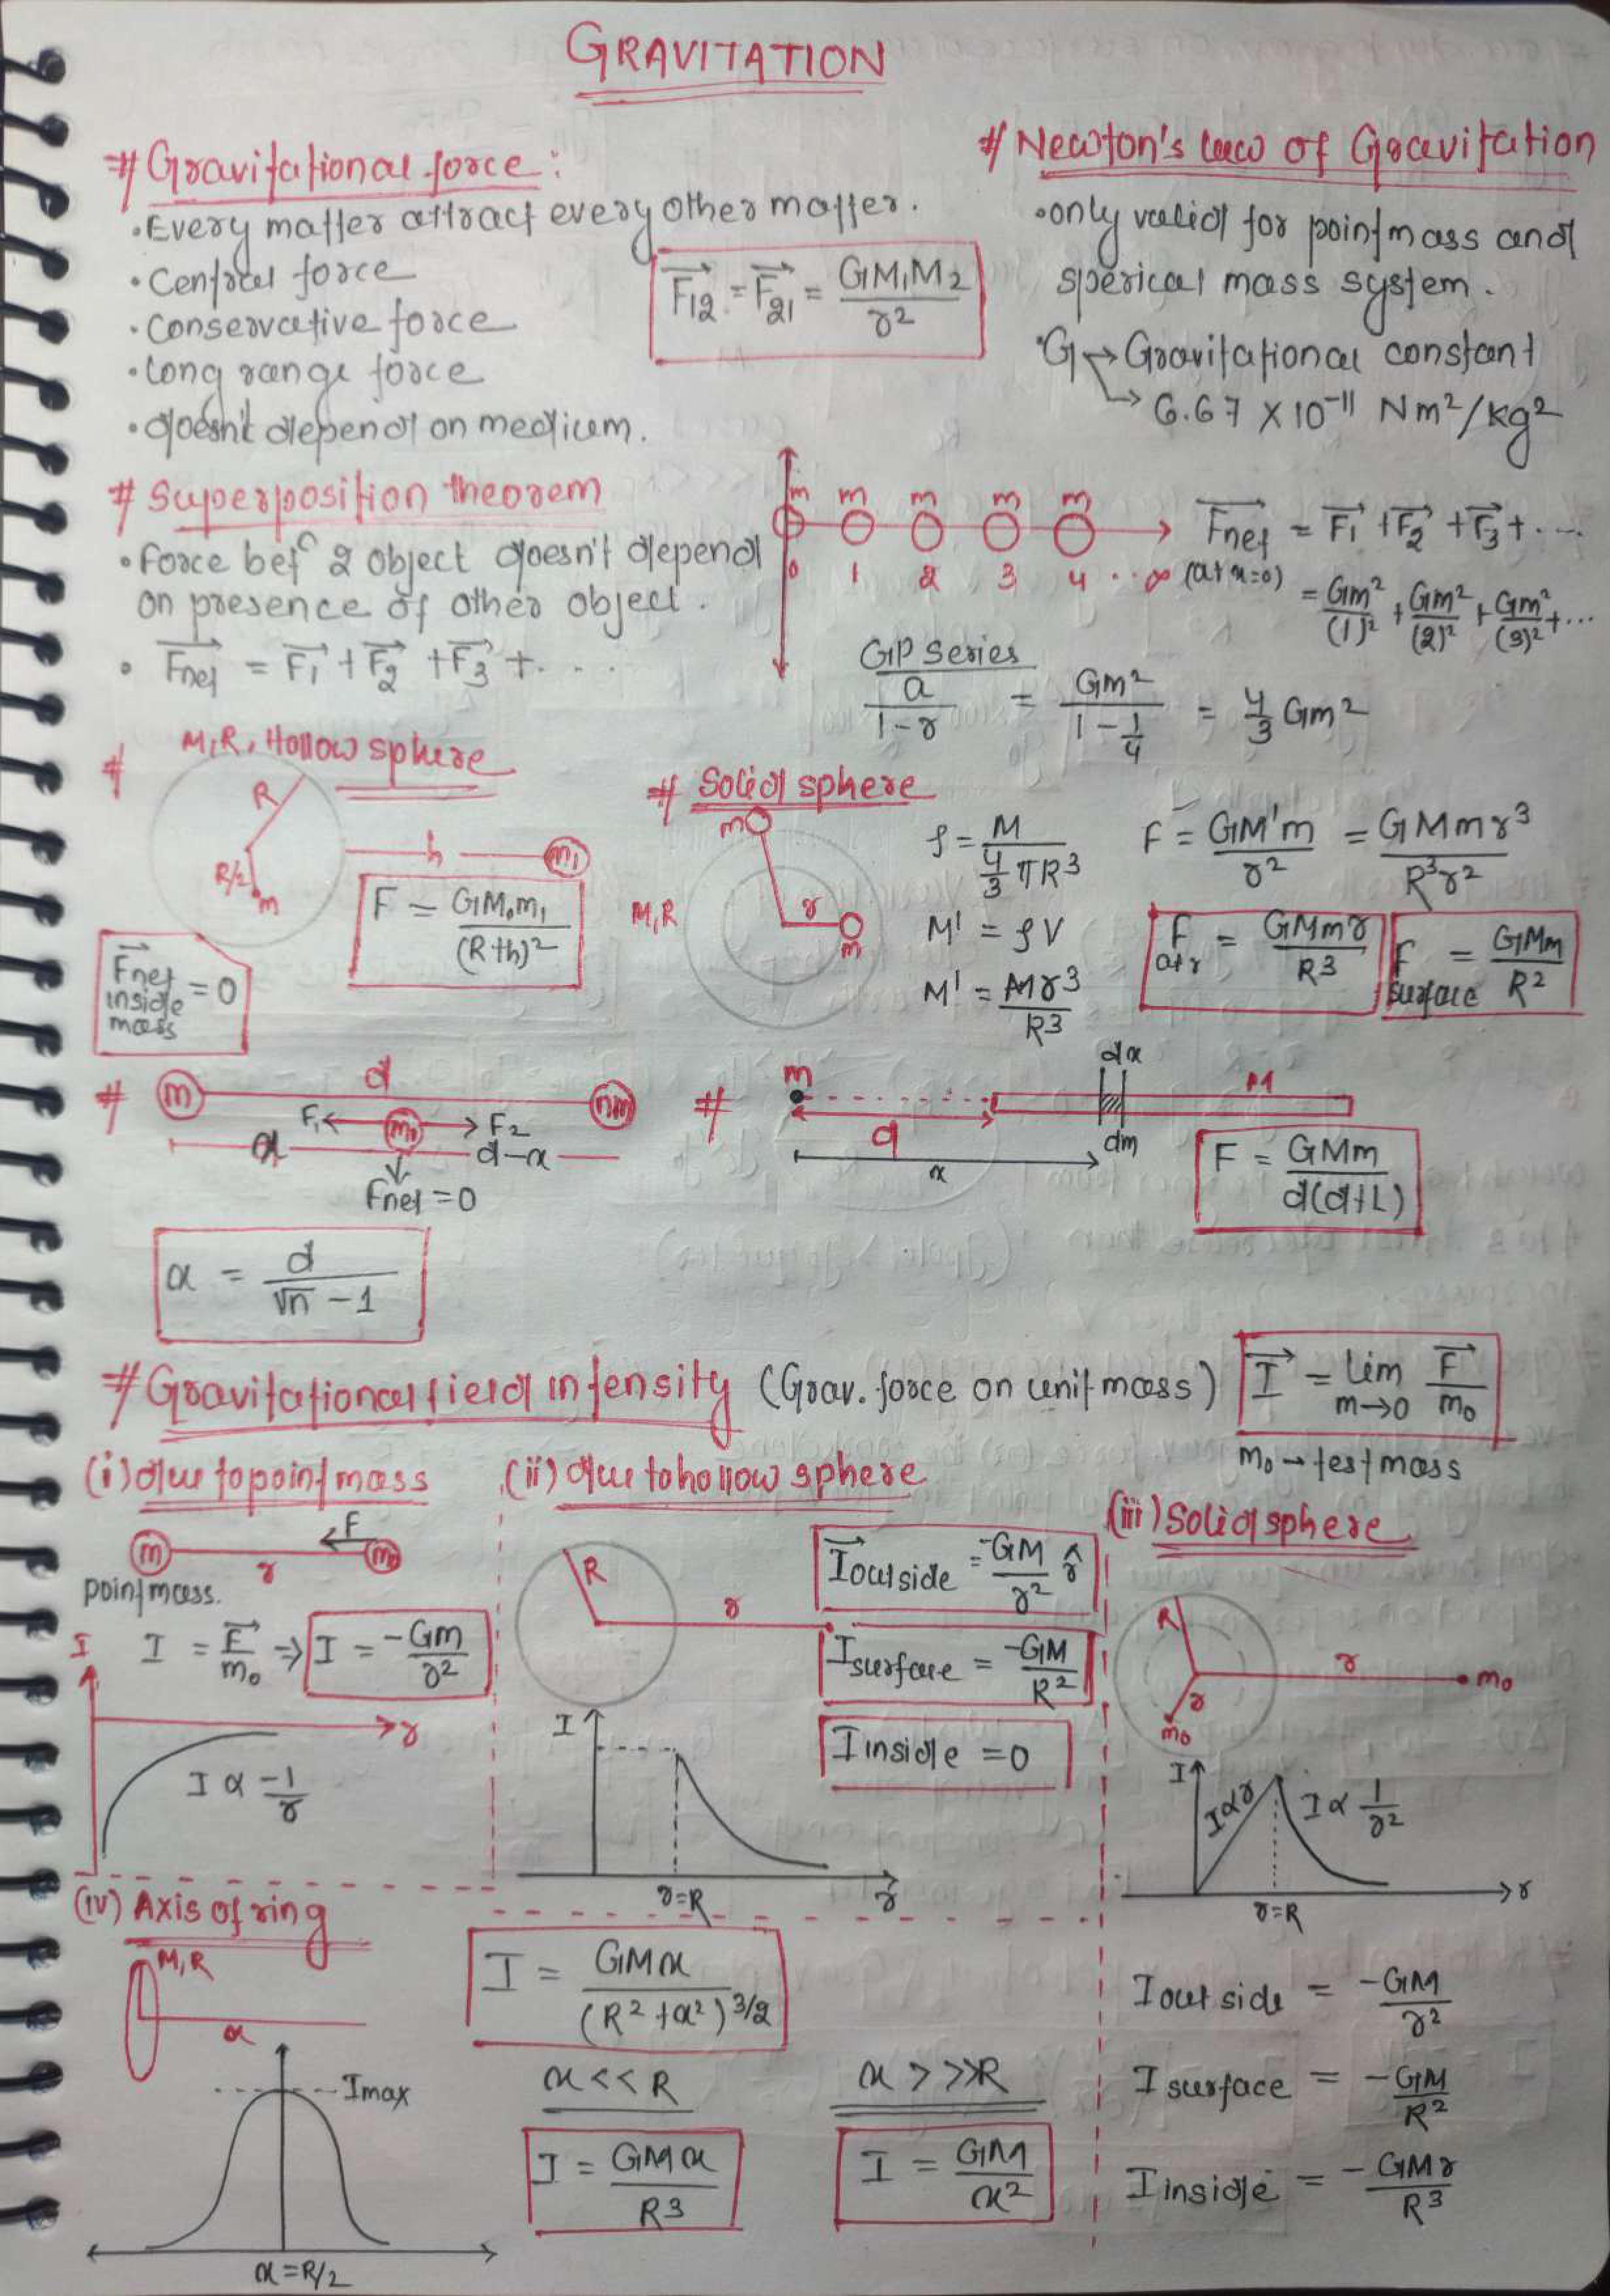 GRAVITATION
# Gravitational force :
• Every matter attract every other matter.
• Central force
• Conservative force
• Long range force
• doesn't depend on medium.
F⃗12 = F⃗21 = GM1M2 / r²
# Newton's law of Gravitation
• only valid for point mass and
sperical mass system.
• G → Gravitational constant
↳ 6.67 × 10⁻¹¹ Nm²/kg²
# Superposition theorem
• Force betn 2 object doesn't depend
on presence of other object.
• F⃗net = F⃗1 + F⃗2 + F⃗3 + ....
m m m m m
0 1 2 3 4 .. ∞
F⃗net = F⃗1 + F⃗2 + F⃗3 + ....
(at x=0)
= Gm²/(1)² + Gm²/(2)² + Gm²/(3)² + ...
GP Series
a/(1-r) = Gm²/(1 - 1/4) = 4/3 Gm²
# M,R, Hollow sphere
R
R/2
m
h
m1
F = GM.m1 / (R+h)²
F⃗net inside mass = 0
# Solid sphere
m
M,R
r
m
ρ = M / (4/3 πR³)
M' = ρV
M' = Mr³ / R³
F = GM'm / r² = GMmr³ / R³r²
F at r = GMmr / R³
F surface = GMm / R²
# m d nm
F1 ← m0 → F2
x d-x
Fnet = 0
x = d / (√n - 1)
# m dx M
d dm
x
F = GMm / d(d+L)
# Gravitational field intensity (Grav. force on unit mass)
I⃗ = lim m→0 F⃗ / m0
m0 → test mass
(i) due to point mass
m r F m0
point mass.
I = F⃗/m0 ⇒ I = -Gm / r²
I
r
I ∝ -1/r
(ii) due to hollow sphere
R r
I⃗outside = -GM/r² r̂
Isurface = -GM/R²
I inside = 0
I
r=R r
(iii) Solid sphere
R r m0
r
m0
I
I∝r I ∝ 1/r²
r=R r
I outside = -GM/r²
I surface = -GM/R²
I inside = -GMr/R³
(iv) Axis of ring
M,R
x
I = GMx / (R²+x²)^3/2
x << R
I = GMx / R³
x >>> R
I = GM / x²
Imax
x = R/2